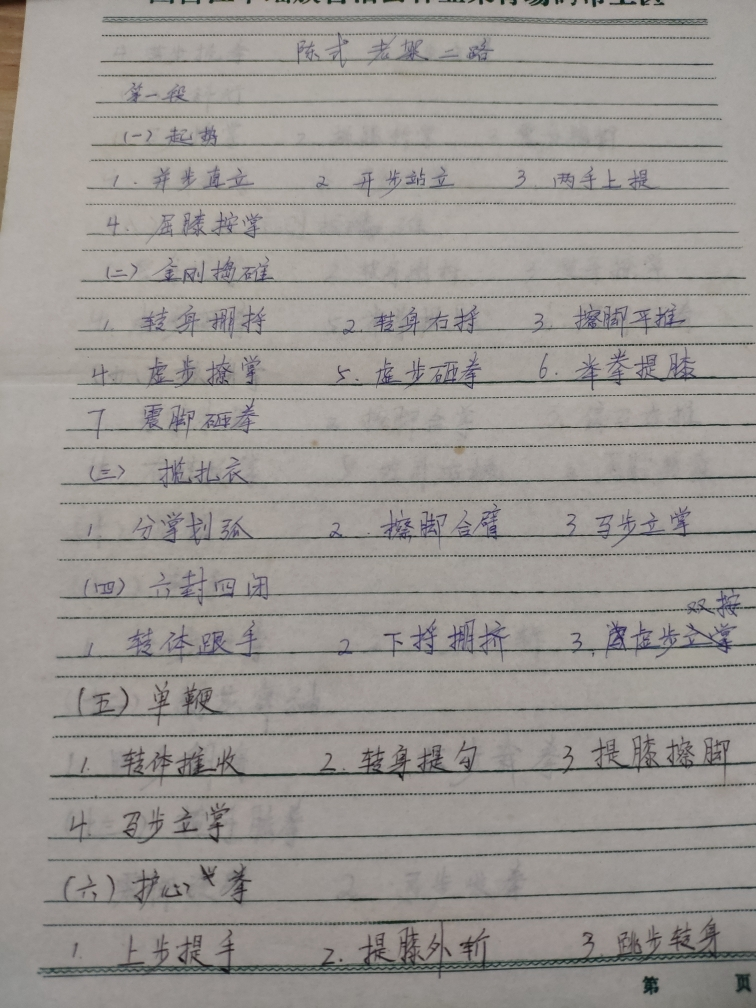 陈式 老架二路
第一段
(一) 起势
1. 并步直立 2. 开步站立 3. 两手上提
4. 屈膝按掌
(二) 金刚捣碓
1. 转身掤捋 2. 转身右捋 3. 擦脚平推
4. 虚步撩掌 5. 虚步砸拳 6. 举拳提膝
7 震脚砸拳
(三) 揽扎衣
1 分掌划弧 2. 擦脚合臂 3 马步立掌
(四) 六封四闭
双按
1 转体跟手 2 下捋掤挤 3. 虚步立掌
(五) 单鞭
1. 转体推收 2. 转身提勾 3 提膝擦脚
4. 马步立掌
(六) 护心拳
1. 上步提手 2. 提膝外 3. 跳步转身
第 页